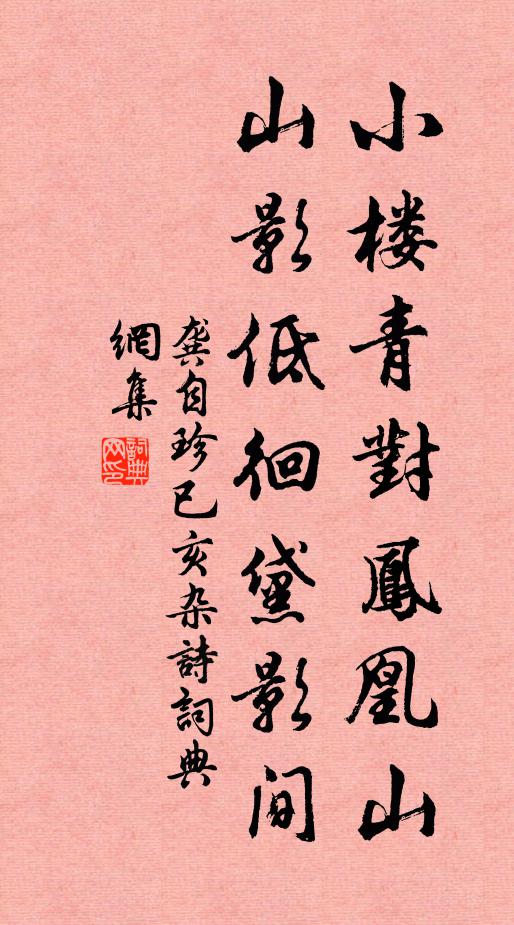 小楼青對鳳凰山
山影低徊黛影間
龔自珍己亥杂詩詞典
網集
詞典網印